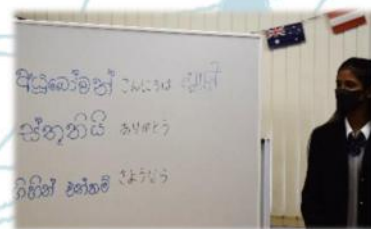 අයුබෝමන් こんにちは
ස්තූතියි ありがとう
ගිහින් එන්නම් さようなら